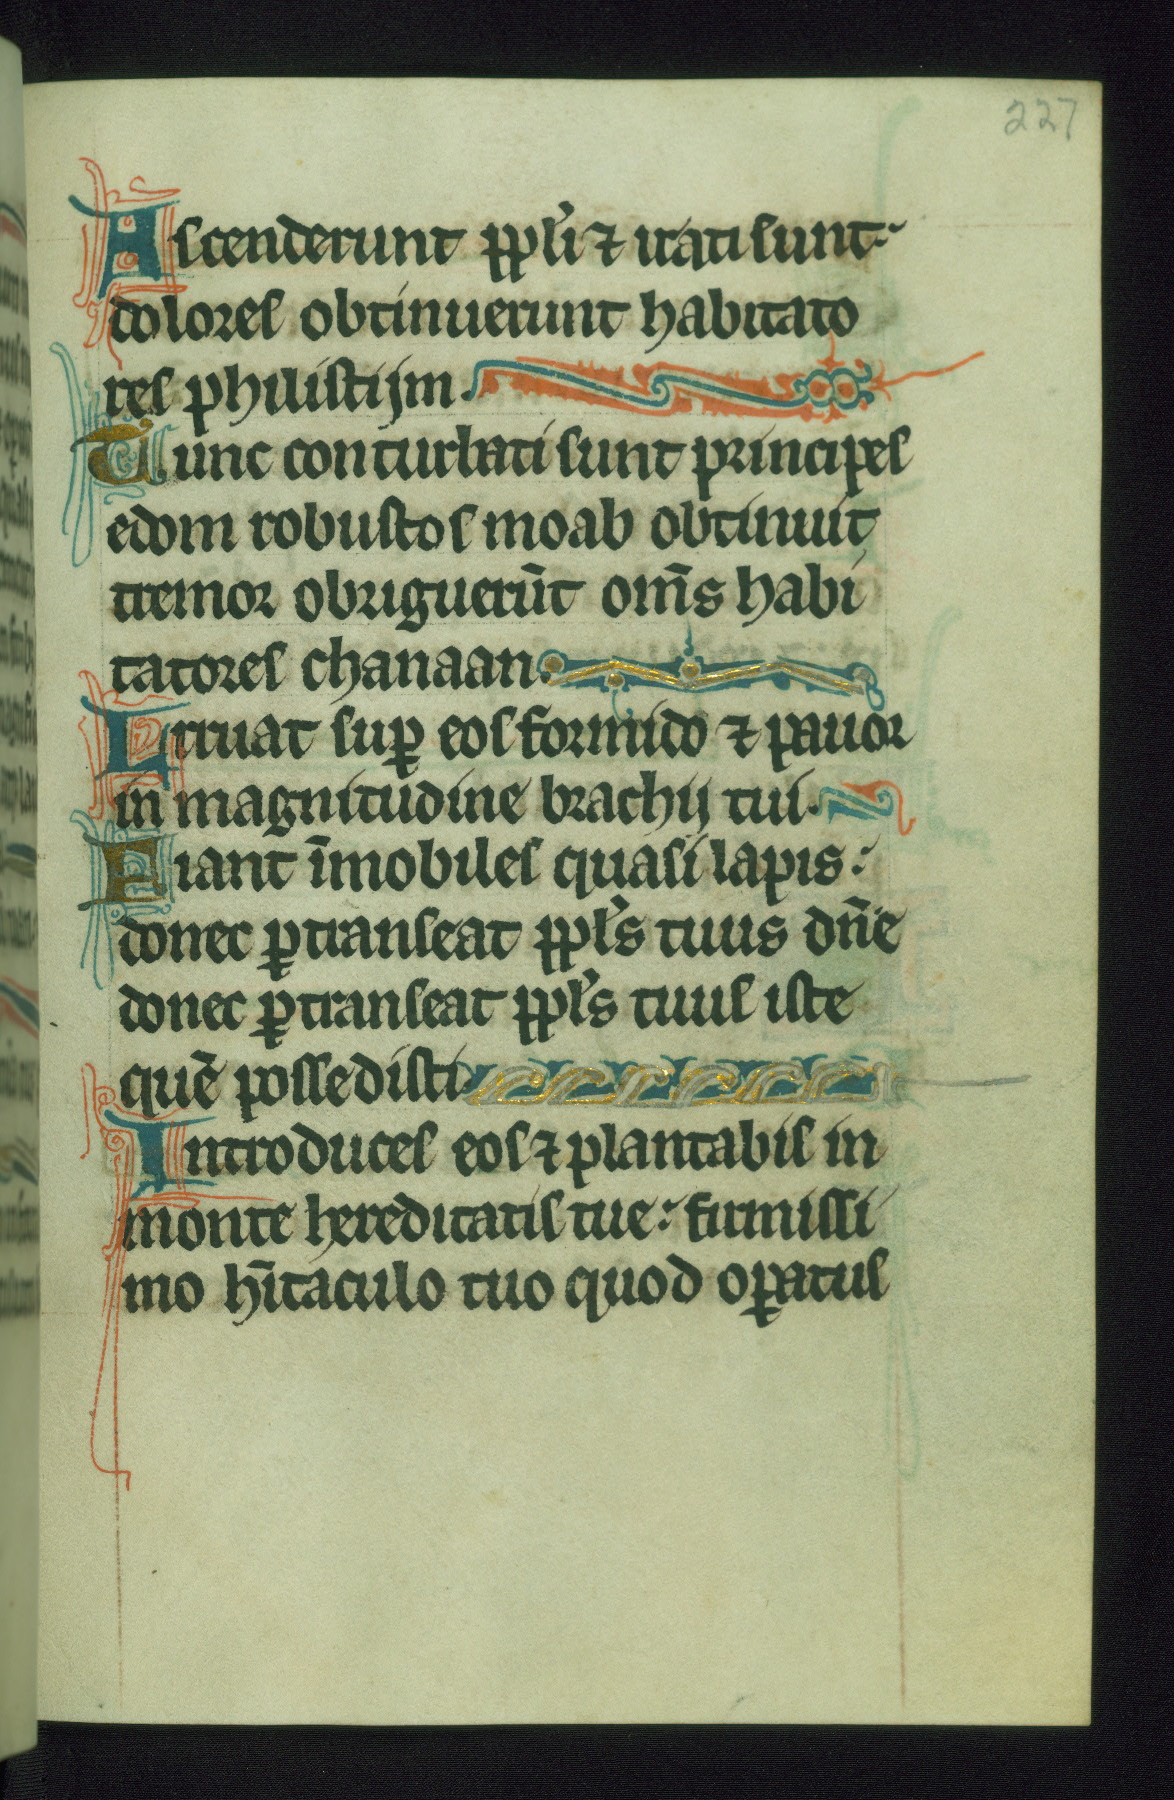 227
Ascenderunt ppl̃i ⁊ irati sunt:
dolores obtinuerunt habitato
res philistijm.
Tunc conturbati sunt principes
edom robustos moab obtinuit
tremor obriguerūt om̄s habi
tatores chanaan.
Irruat sup̱ eos formido ⁊ pauor
in magnitudine brachij tui.
Fiant īmobiles quasi lapis:
donec p̱transeat ppl̃s tuus dn̄e
donec p̱transeat ppl̃s tuus iste
quē possedisti.
Introduces eos ⁊ plantabis in
monte hereditatis tue: firmissi
mo hītaculo tuo quod op̱atus